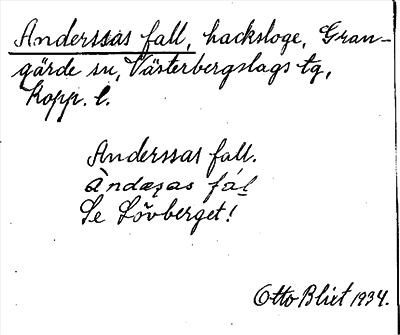 Anderssas fall, hacksloge, Gran-
gärde sn, Västerbergslags tg,
Kopp. l.
Anderssas fall.
Àndaʂas fál
Se Lövberget!
Otto Blixt 1934.